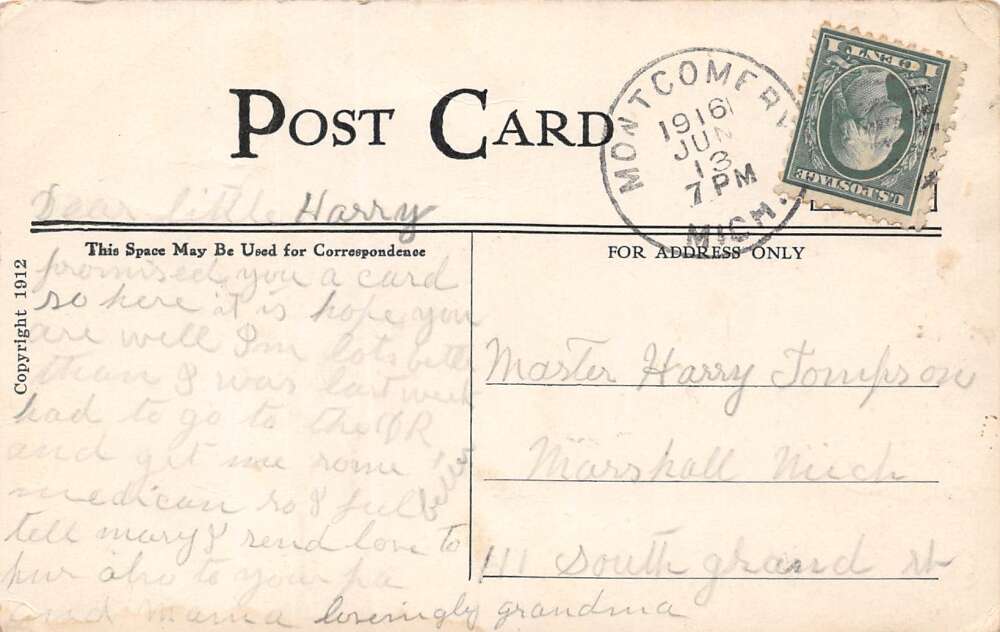 POST CARD
MONTGOMERY
1916
JUN
13
7 PM
MICH.
1 CENT 1
U.S. POSTAGE
Dear Little Harry
This Space May Be Used for Correspondence
promised you a card
so here it is hope you
are well I'm lots better
than I was last week
had to go to the DR
and get me some
medican so I feel better
tell mary I send love to
hur also to your pa
and mama lovingly grandma
Copyright 1912
FOR ADDRESS ONLY
Master Harry Tompson
Marshall Mich
111 South grand st